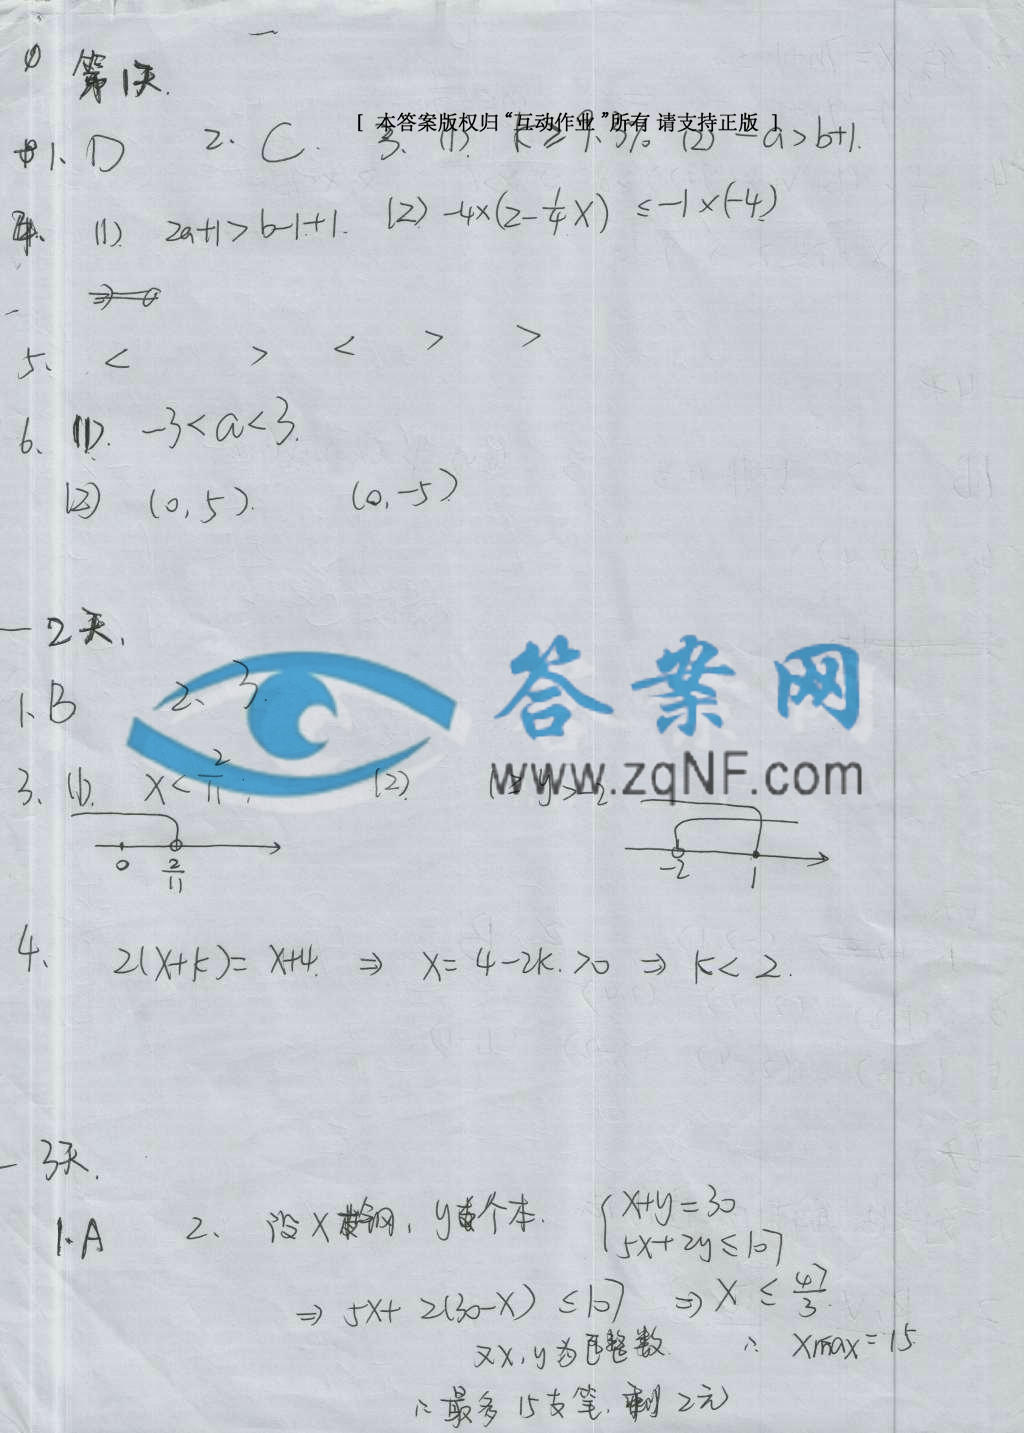 第1天.
[ 本答案版权归“互动作业”所有 请支持正版 ]
1、D 2、C. 3、(1). (2) -a>b+1.
4、(1). 2a+1>b-1+1. (2) -4×(2-1/4X) ≤-1×(-4)
5、 < > < > >
6、(1). -3<a<3.
(2) (0,5). (0,-5)
2天.
答案网
1、B 2、3.
www.zqNF.com
3、(1). X<2/11. (2). y>-2
0 2/11 -2 1
4、 2(X+k)= X+4. ⇒ X=4-2k.>0 ⇒ k<2.
3天.
1.A 2、 设X 钢, y 个本. { X+y=30
5X+2y≤107
⇒ 5X+2(30-X) ≤107 ⇒ X ≤ 47/3.
又X,y为 整数. ∴ Xmax=15
∴最多15支笔.剩2元